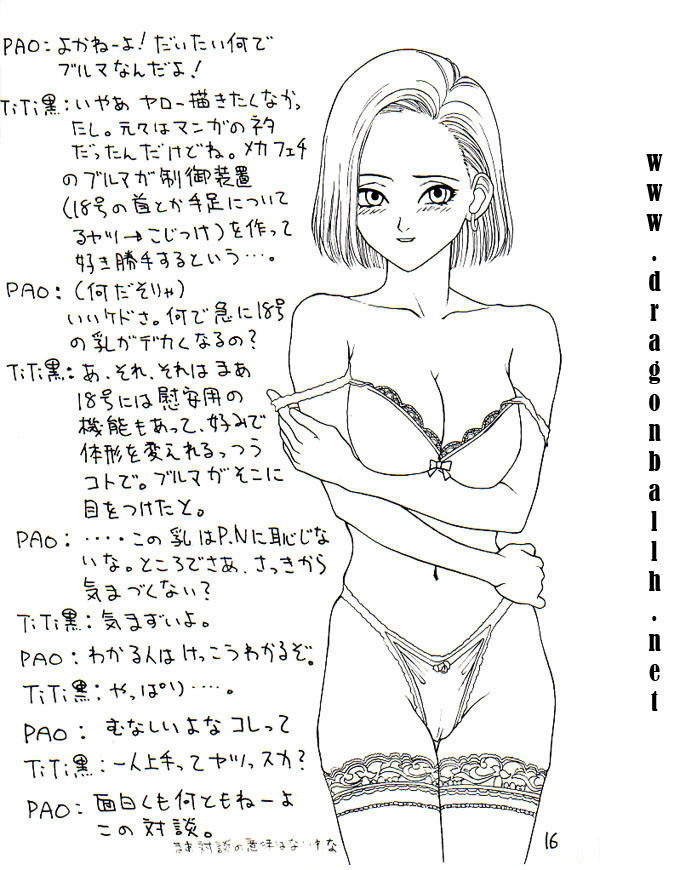 PAO：よかねーよ！だいたい何で
ブルマなんだよ！
TiTi黒：いやあ ヤロー描きたくなかっ
たし。元々はマンガのネタ
だったんだけどね。メカフェチ
のブルマが制御装置
（18号の首とか手足について
るヤツ→こじつけ）を作って
好き勝手するという…。
PAO：（何だそりゃ）
いいケドさ。何で急に18号
の乳がデカくなるの？
TiTi黒：あ、それ、それはまあ
18号には慰安用の
機能もあって、好みで
体形を変えれるっつう
コトで。ブルマがそこに
目をつけたと。
PAO：‥‥この乳はP.Nに恥じな
いな。ところでさあ、さっきから
気まづくない？
TiTi黒：気まずいよ。
PAO：わかる人はけっこうわかるぞ。
TiTi黒：やっぱり‥‥。
PAO：むなしいよなコレって
TiTi黒：一人上手ってヤツっスカ？
PAO：面白くも何ともねーよ
この対談。
まあ対談の意味はないわな
16
www.dragonballh.net